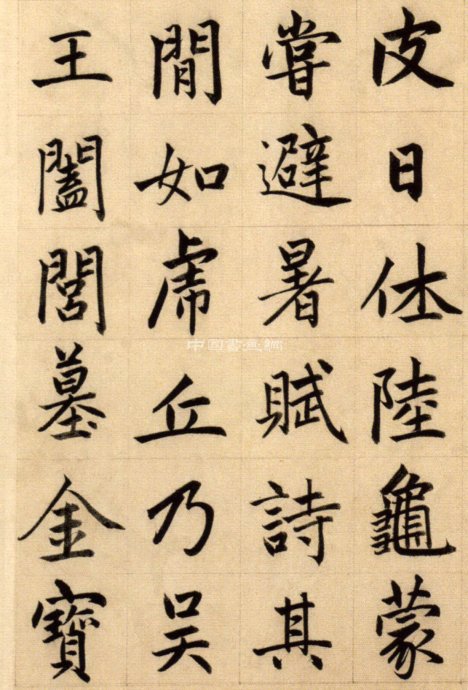 皮日休陸龜蒙
嘗避暑賦詩其
閒如虎丘乃吴
王闔閭墓金寶
中国書画網